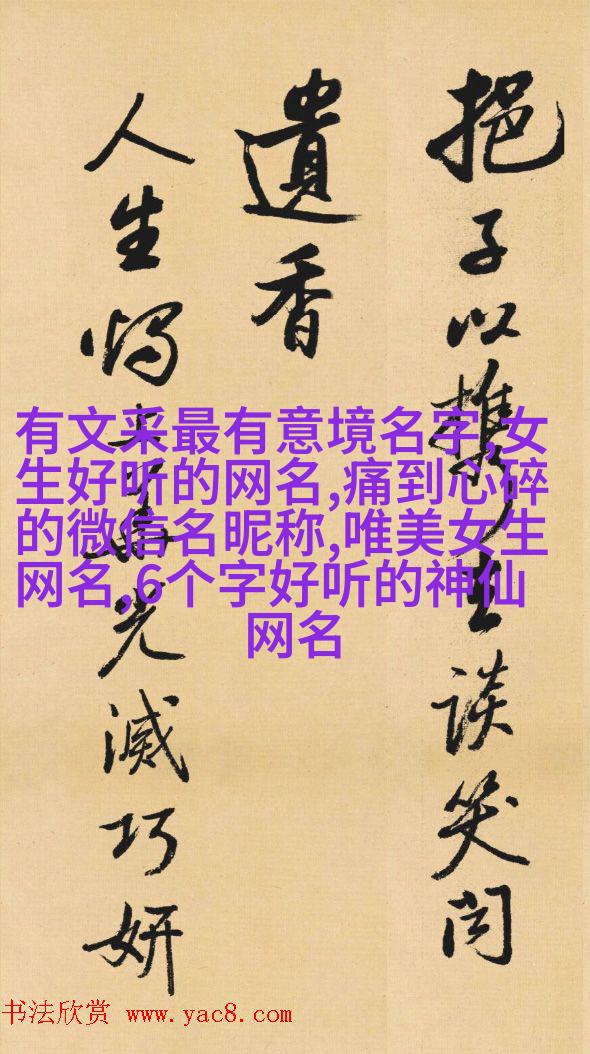 挹子以攜談笑
遺香
人生光滅巧妍
有文采最有意境名字,女
生好听的网名,痛到心碎
的微信名昵称,唯美女生
网名,6个字好听的神仙
网名
书法欣赏 www.yac8.com